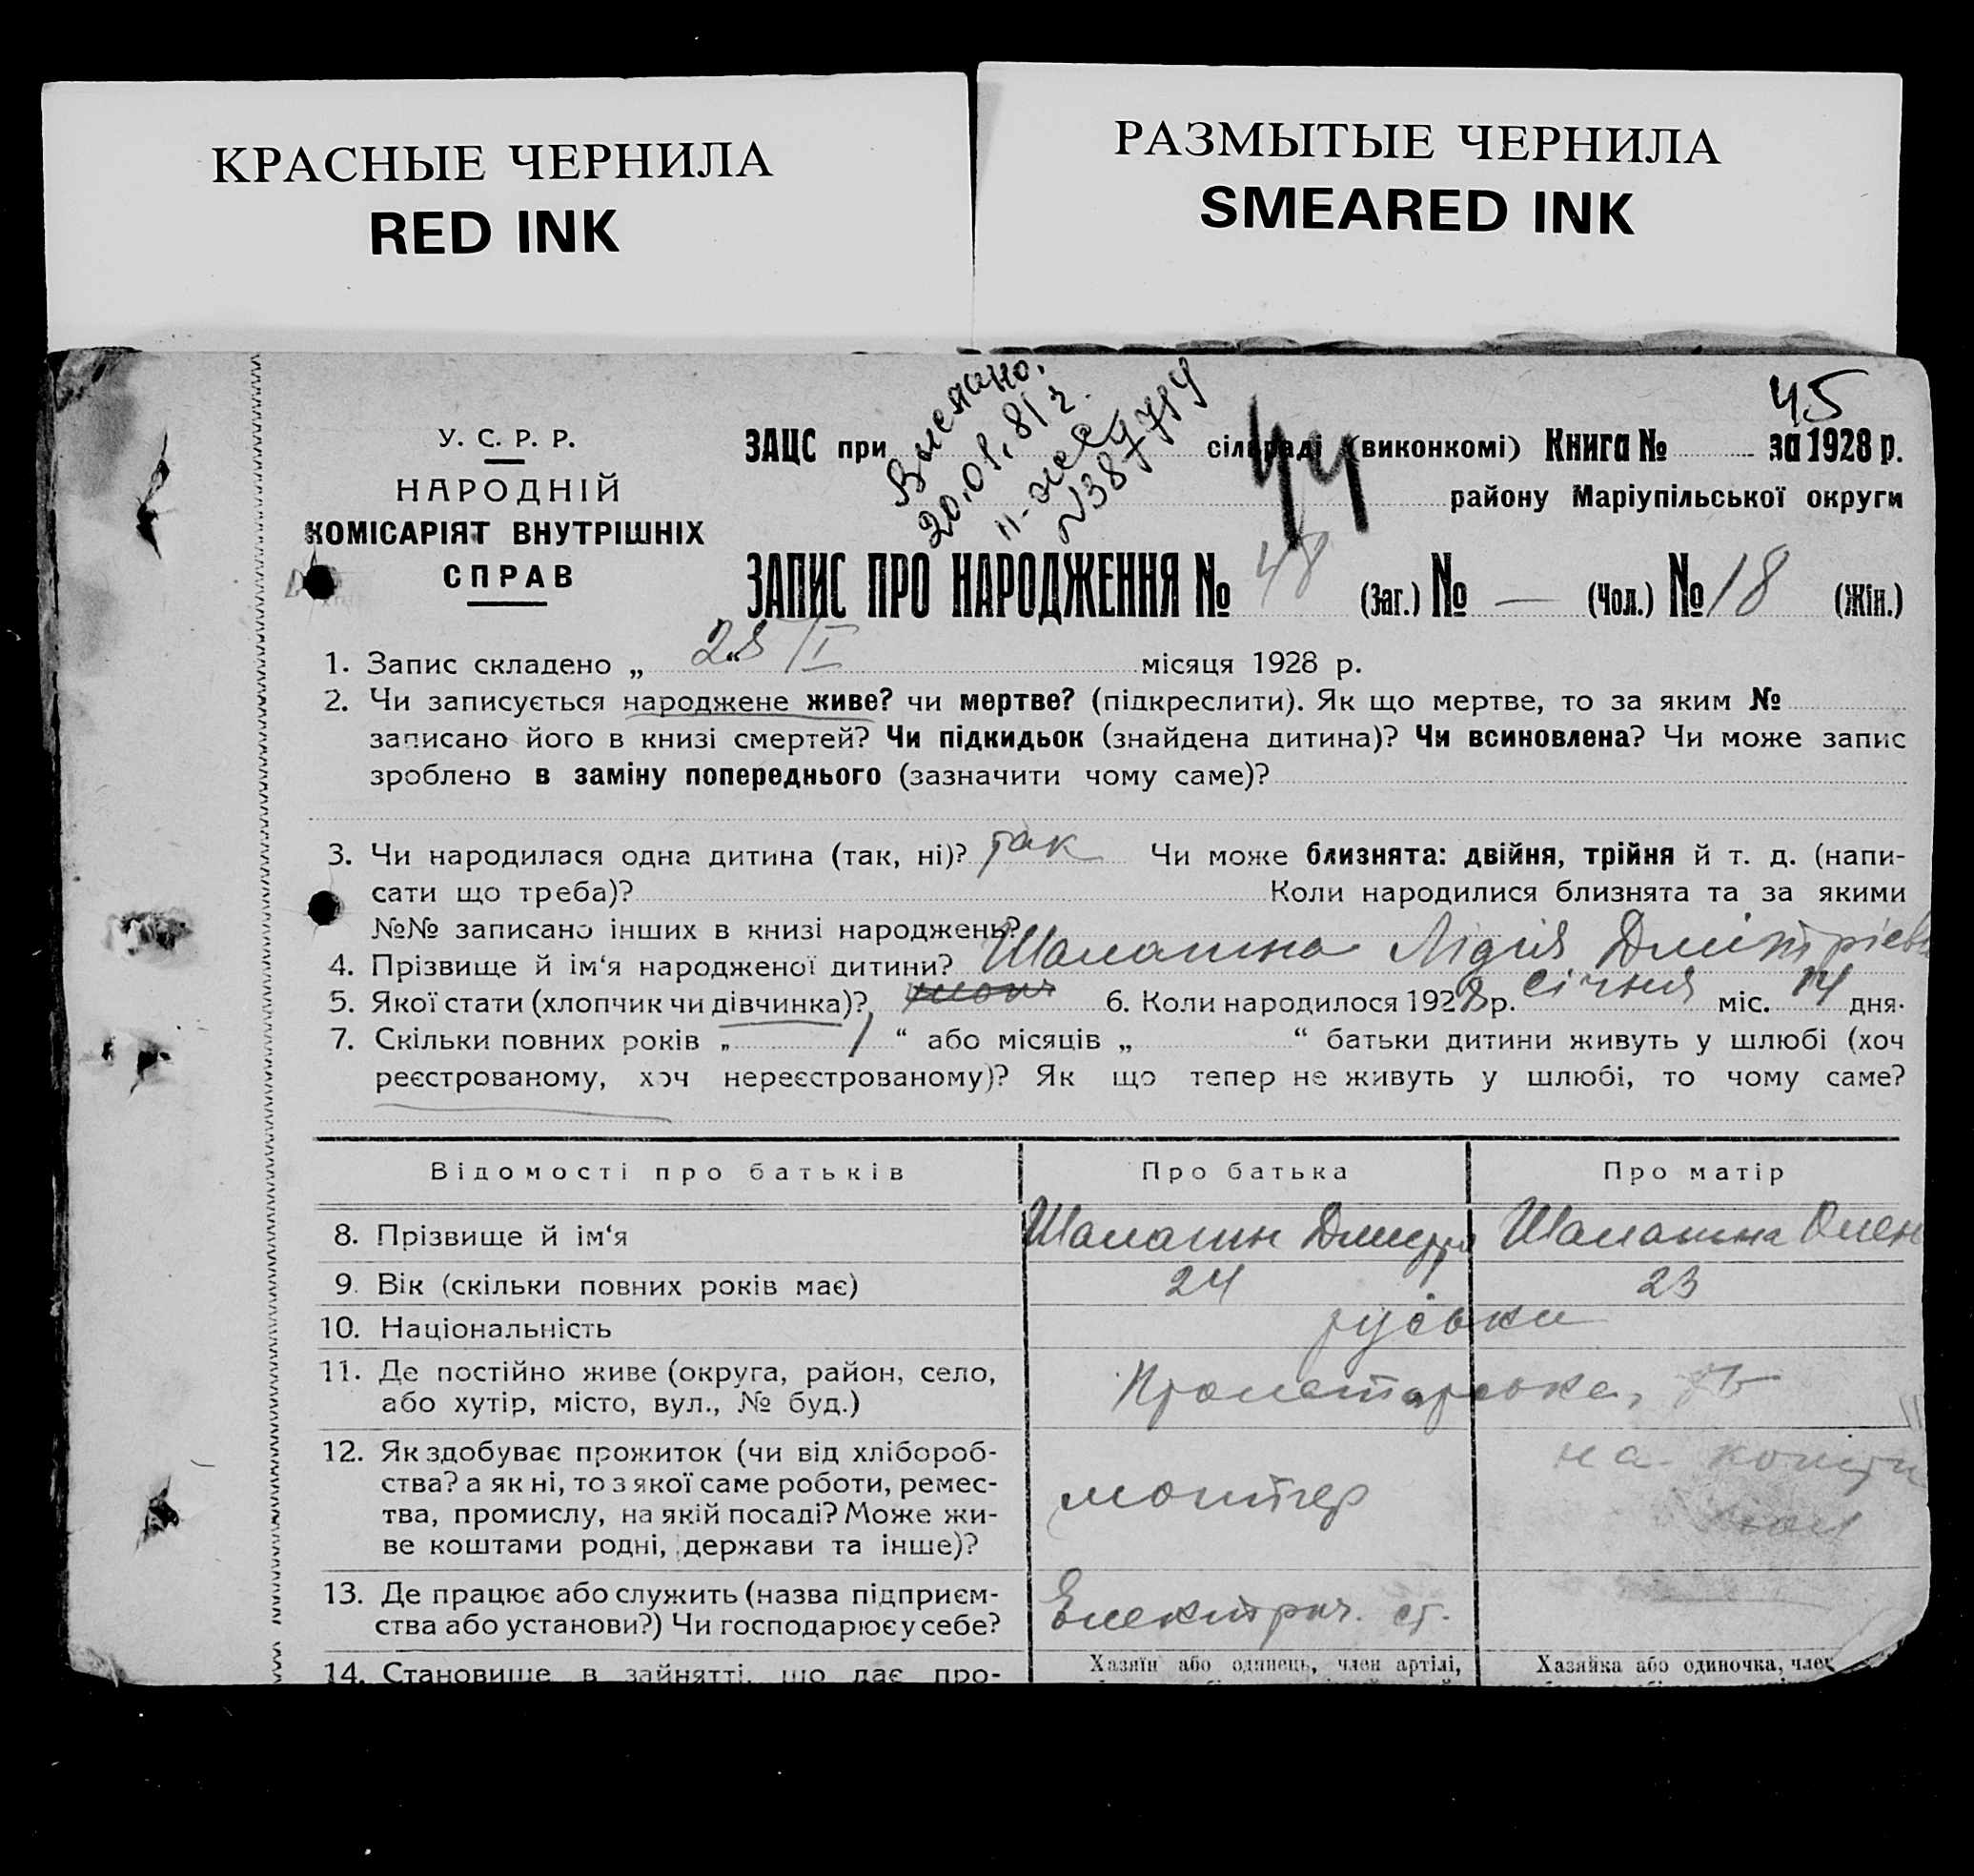 КРАСНЫЕ ЧЕРНИЛА
RED INK
РАЗМЫТЫЕ ЧЕРНИЛА
SMEARED INK
45
У. С. Р. Р.
НАРОДНІЙ
КОМІСАРІЯТ ВНУТРІШНІХ
СПРАВ
Выслано.
20.01.81 г.
ЗАЦС при сільраді (виконкомі) Книга № за 1928 р.
44
району Маріупільської округи
ЗАПИС ПРО НАРОДЖЕННЯ № 48 (Заг.) № — (Чол.) № 18 (Жін.)
1. Запис складено „ 28 /I місяця 1928 р.
2. Чи записується народжене живе? чи мертве? (підкреслити). Як що мертве, то за яким №
записано його в книзі смертей? Чи підкидьок (знайдена дитина)? Чи всиновлена? Чи може запис
зроблено в заміну попереднього (зазначити чому саме)?
3. Чи народилася одна дитина (так, ні)? так Чи може близнята: двійня, трійня й т. д. (напи-
сати що треба)? Коли народилися близнята та за якими
№№ записано інших в книзі народжень?
4. Прізвище й ім‘я народженої дитини? Шалашна Лідія Дмітріевн
5. Якої стати (хлопчик чи дівчинка)? 6. Коли народилося 1928 р. січня міс. 14 дня.
7. Скільки повних років „ 1 “ або місяців „ “ батьки дитини живуть у шлюбі (хоч
реєстрованому, хоч нереєстрованому)? Як що тепер не живуть у шлюбі, то чому саме?
Відомості про батьків Про батька Про матір
8. Прізвище й ім‘я Шалашн Дмитрій Шалашна Олен
9. Вік (скільки повних років має) 24 23
10. Національність руськи
11. Де постійно живе (округа, район, село,
або хутір, місто, вул., № буд.) Пролетарська,
12. Як здобуває прожиток (чи від хлібороб-
ства? а як ні, то з якої саме роботи, ремес-
тва, промислу, на якій посаді? Може жи-
ве коштами родні, держави та інше)? монтер на
13. Де працює або служить (назва підприєм-
ства або установи?) Чи господарює у себе? Електрич. ст.
14. Становище в зайнятті, що дає про-
Хазяїн або одинець, член артілі,
Хазяйка або одиночка, член